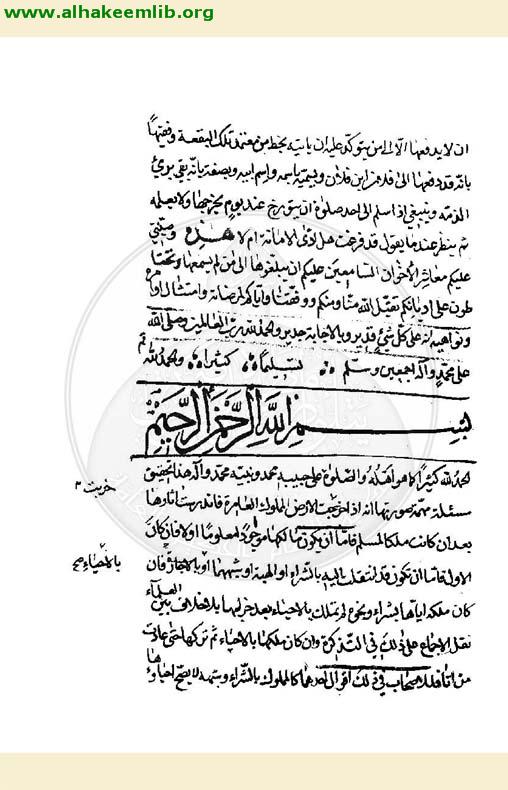 www.alhakeemlib.org
ان لا يدفعها الا الى من يتوكد عليه ان ياتيه بخط من معتمد تلك البقعة وفقيهها
بانه قد دفعها الى فلان ابن فلان ويسميه باسمه واسم ابيه وبصفته بانه بقى برئ
الذمه وينبغي اذا اسلم الى احد صلوة ان يتورخ عنده يوم يخرجها ولا يهمله
ثم ينظر عندما يقول قد فرغت هل ادى الامانة ام لا هذه
عليكم معاشر الاخوان السامعين عليكم ان يبلغوها الى من لم يسمعها
على اديانكم تقبل الله منا ومنكم ووفقنا واياكم لمرضاته وامتثال اوامره
ونواهيه انه على كل شئ قدير وبالاجابة جدير والحمد لله رب العالمين وصلى الله
على محمد وآله اجمعين وسلم تسليما كثيرا والحمد لله
بسم الله الرحمن الرحيم
الحمد لله كثيرا كما هو اهله والصلوة على حبيبه محمد ونبيه محمد وآله هذا تحقيق
مسئلة مهمة صورتها انه اذا خربت الارض المملوك العامرة فاندرست آثارها
بعد ان كانت ملكا لمسلم فاما ان يكون مالكها موجودا معلوما او لا فان كان
الاول فاما ان تكون قد انتقلت اليه بالشراء او الهبة او شبههما او بالاحياء فان
كان ملكه اياها بشراء ونحوه لم يملك بالاحياء بعد خرابها بلا خلاف بين العلماء
نقل الاجماع على ذلك في التذكرة وان كان ملكها بالاحياء ثم تركها حتى عادت
مواتا فللاصحاب في ذلك اقوال احدها كالمملوك بالشراء وشبهه لا يصح احياؤها
خربت
بالاحياء صح